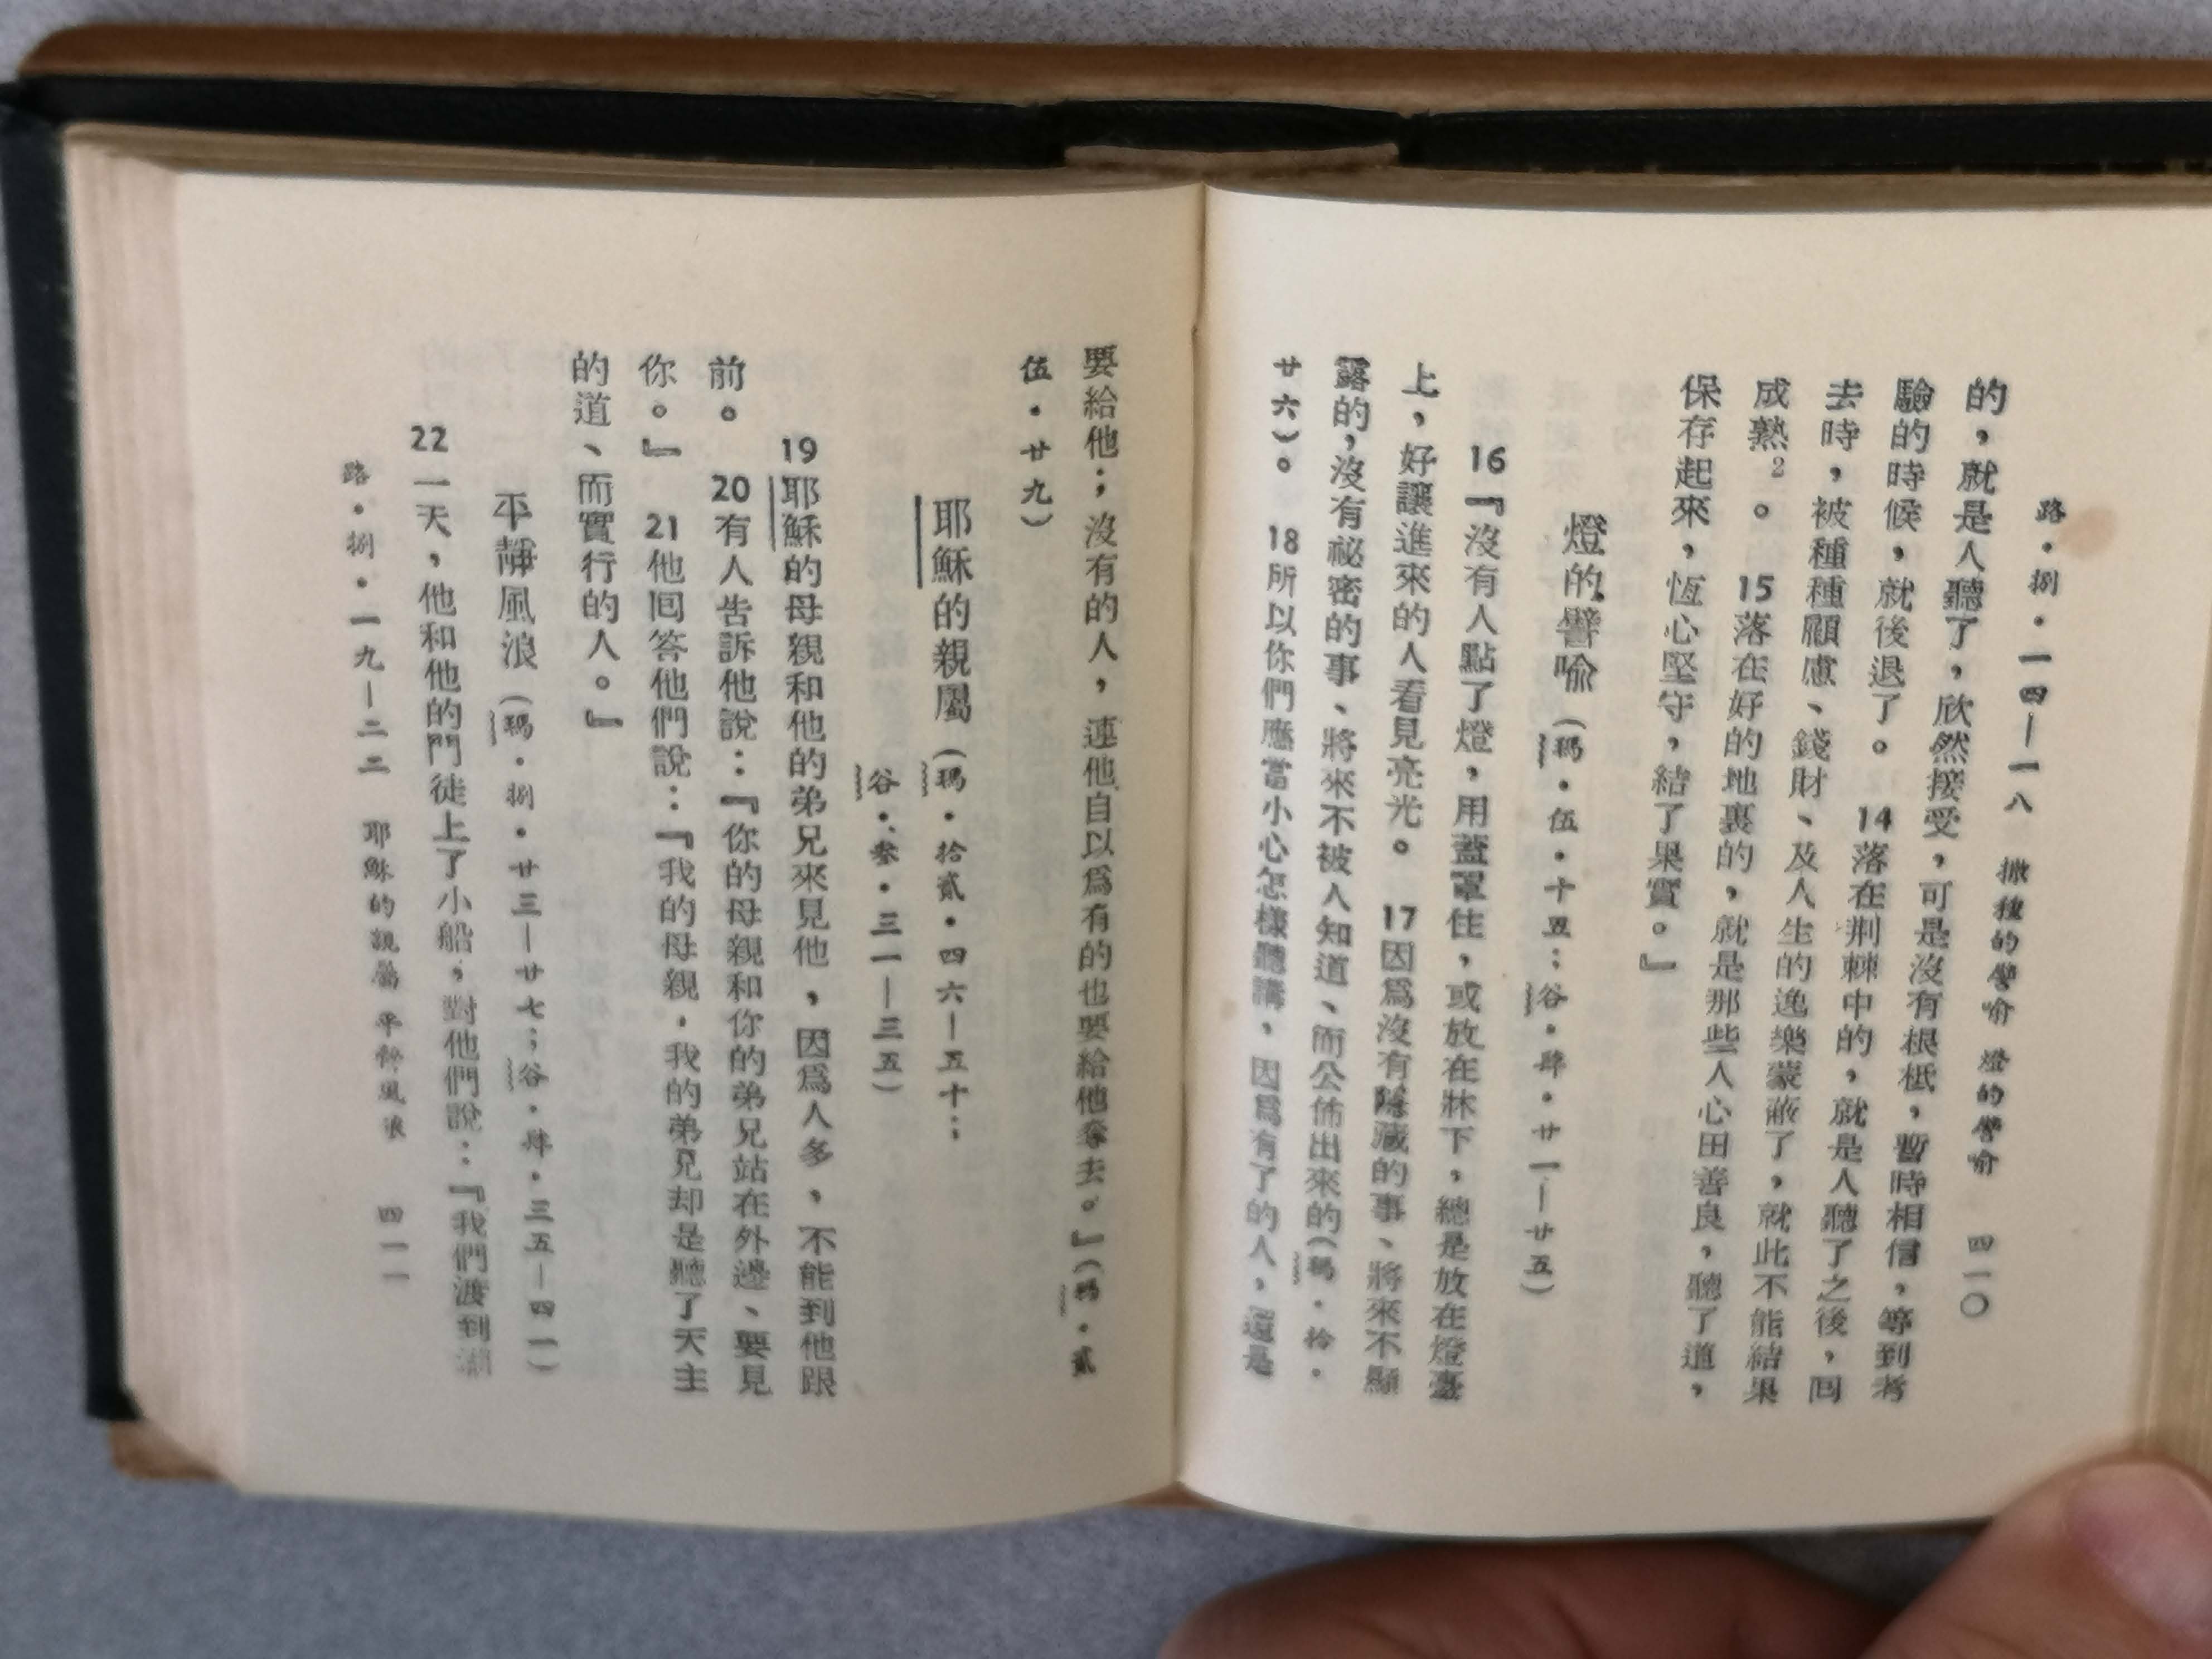 路・捌・一四—一八　撒種的譬喻　燈的譬喻　四一〇
的，就是人聽了，欣然接受，可是沒有根柢，暫時相信，等到考
驗的時候，就後退了。　14落在荆棘中的，就是人聽了之後，回
去時，被種種顧慮、錢財、及人生的逸樂蒙蔽了，就此不能結果
成熟2。　15落在好的地裏的，就是那些人心田善良，聽了道，
保存起來，恆心堅守，結了果實。』
燈的譬喻（瑪・伍・十五；谷・肆・廿一—廿五）
16『沒有人點了燈，用蓋罩住，或放在牀下，總是放在燈臺
上，好讓進來的人看見亮光。　17因爲沒有隱藏的事、將來不顯
露的，沒有祕密的事、將來不被人知道、而公佈出來的（瑪・拾・
廿六）。　18所以你們應當小心怎樣聽講，因爲有了的人，還是
要給他；沒有的人，連他自以爲有的也要給他奪去。』（瑪・貳
伍・廿九）
耶穌的親屬（瑪・拾貳・四六—五十；
谷・叁・三一—三五）
19耶穌的母親和他的弟兄來見他，因爲人多，不能到他跟
前。　20有人告訴他說：『你的母親和你的弟兄站在外邊、要見
你。』　21他回答他們說：『我的母親，我的弟兄却是聽了天主
的道、而實行的人。』
平靜風浪（瑪・捌・廿三—廿七；谷・肆・三五—四一）
22一天，他和他的門徒上了小船，對他們說：『我們渡到湖
路・捌・一九—二二　耶穌的親屬　平靜風浪　四一一